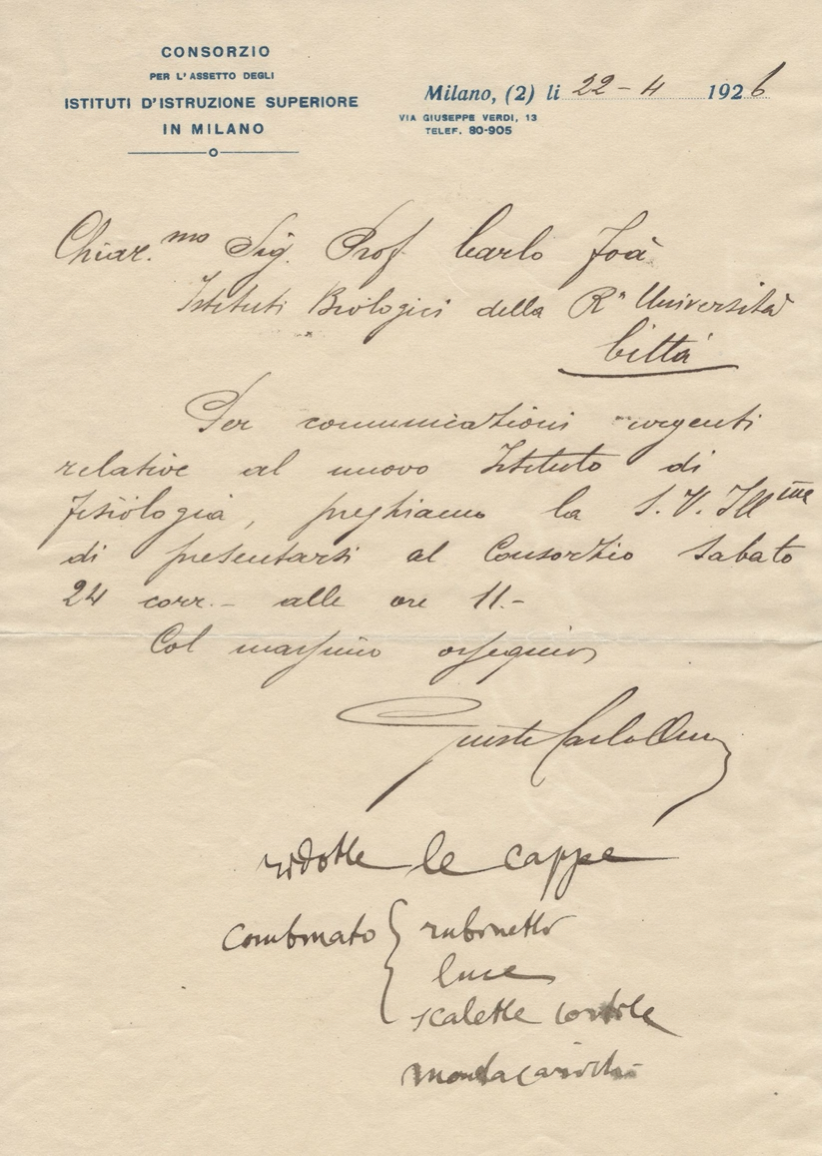 CONSORZIO
PER L'ASSETTO DEGLI
ISTITUTI D'ISTRUZIONE SUPERIORE
IN MILANO
Milano, (2) li 22-4 1926
VIA GIUSEPPE VERDI, 13
TELEF. 80-905
Chiar.mo Sig. Prof Carlo Foà
Istituti Biologici della Ra Università
Città
Per comunicazioni urgenti
relative al nuovo Istituto di
fisiologia, preghiamo la S.V. Ill
di presentarsi al Consorzio Sabato
24 corr.- alle ore 11.-
Col massimo ossequio
ridotte le cappe
combinato { rubinetto
luce
scalette cortile